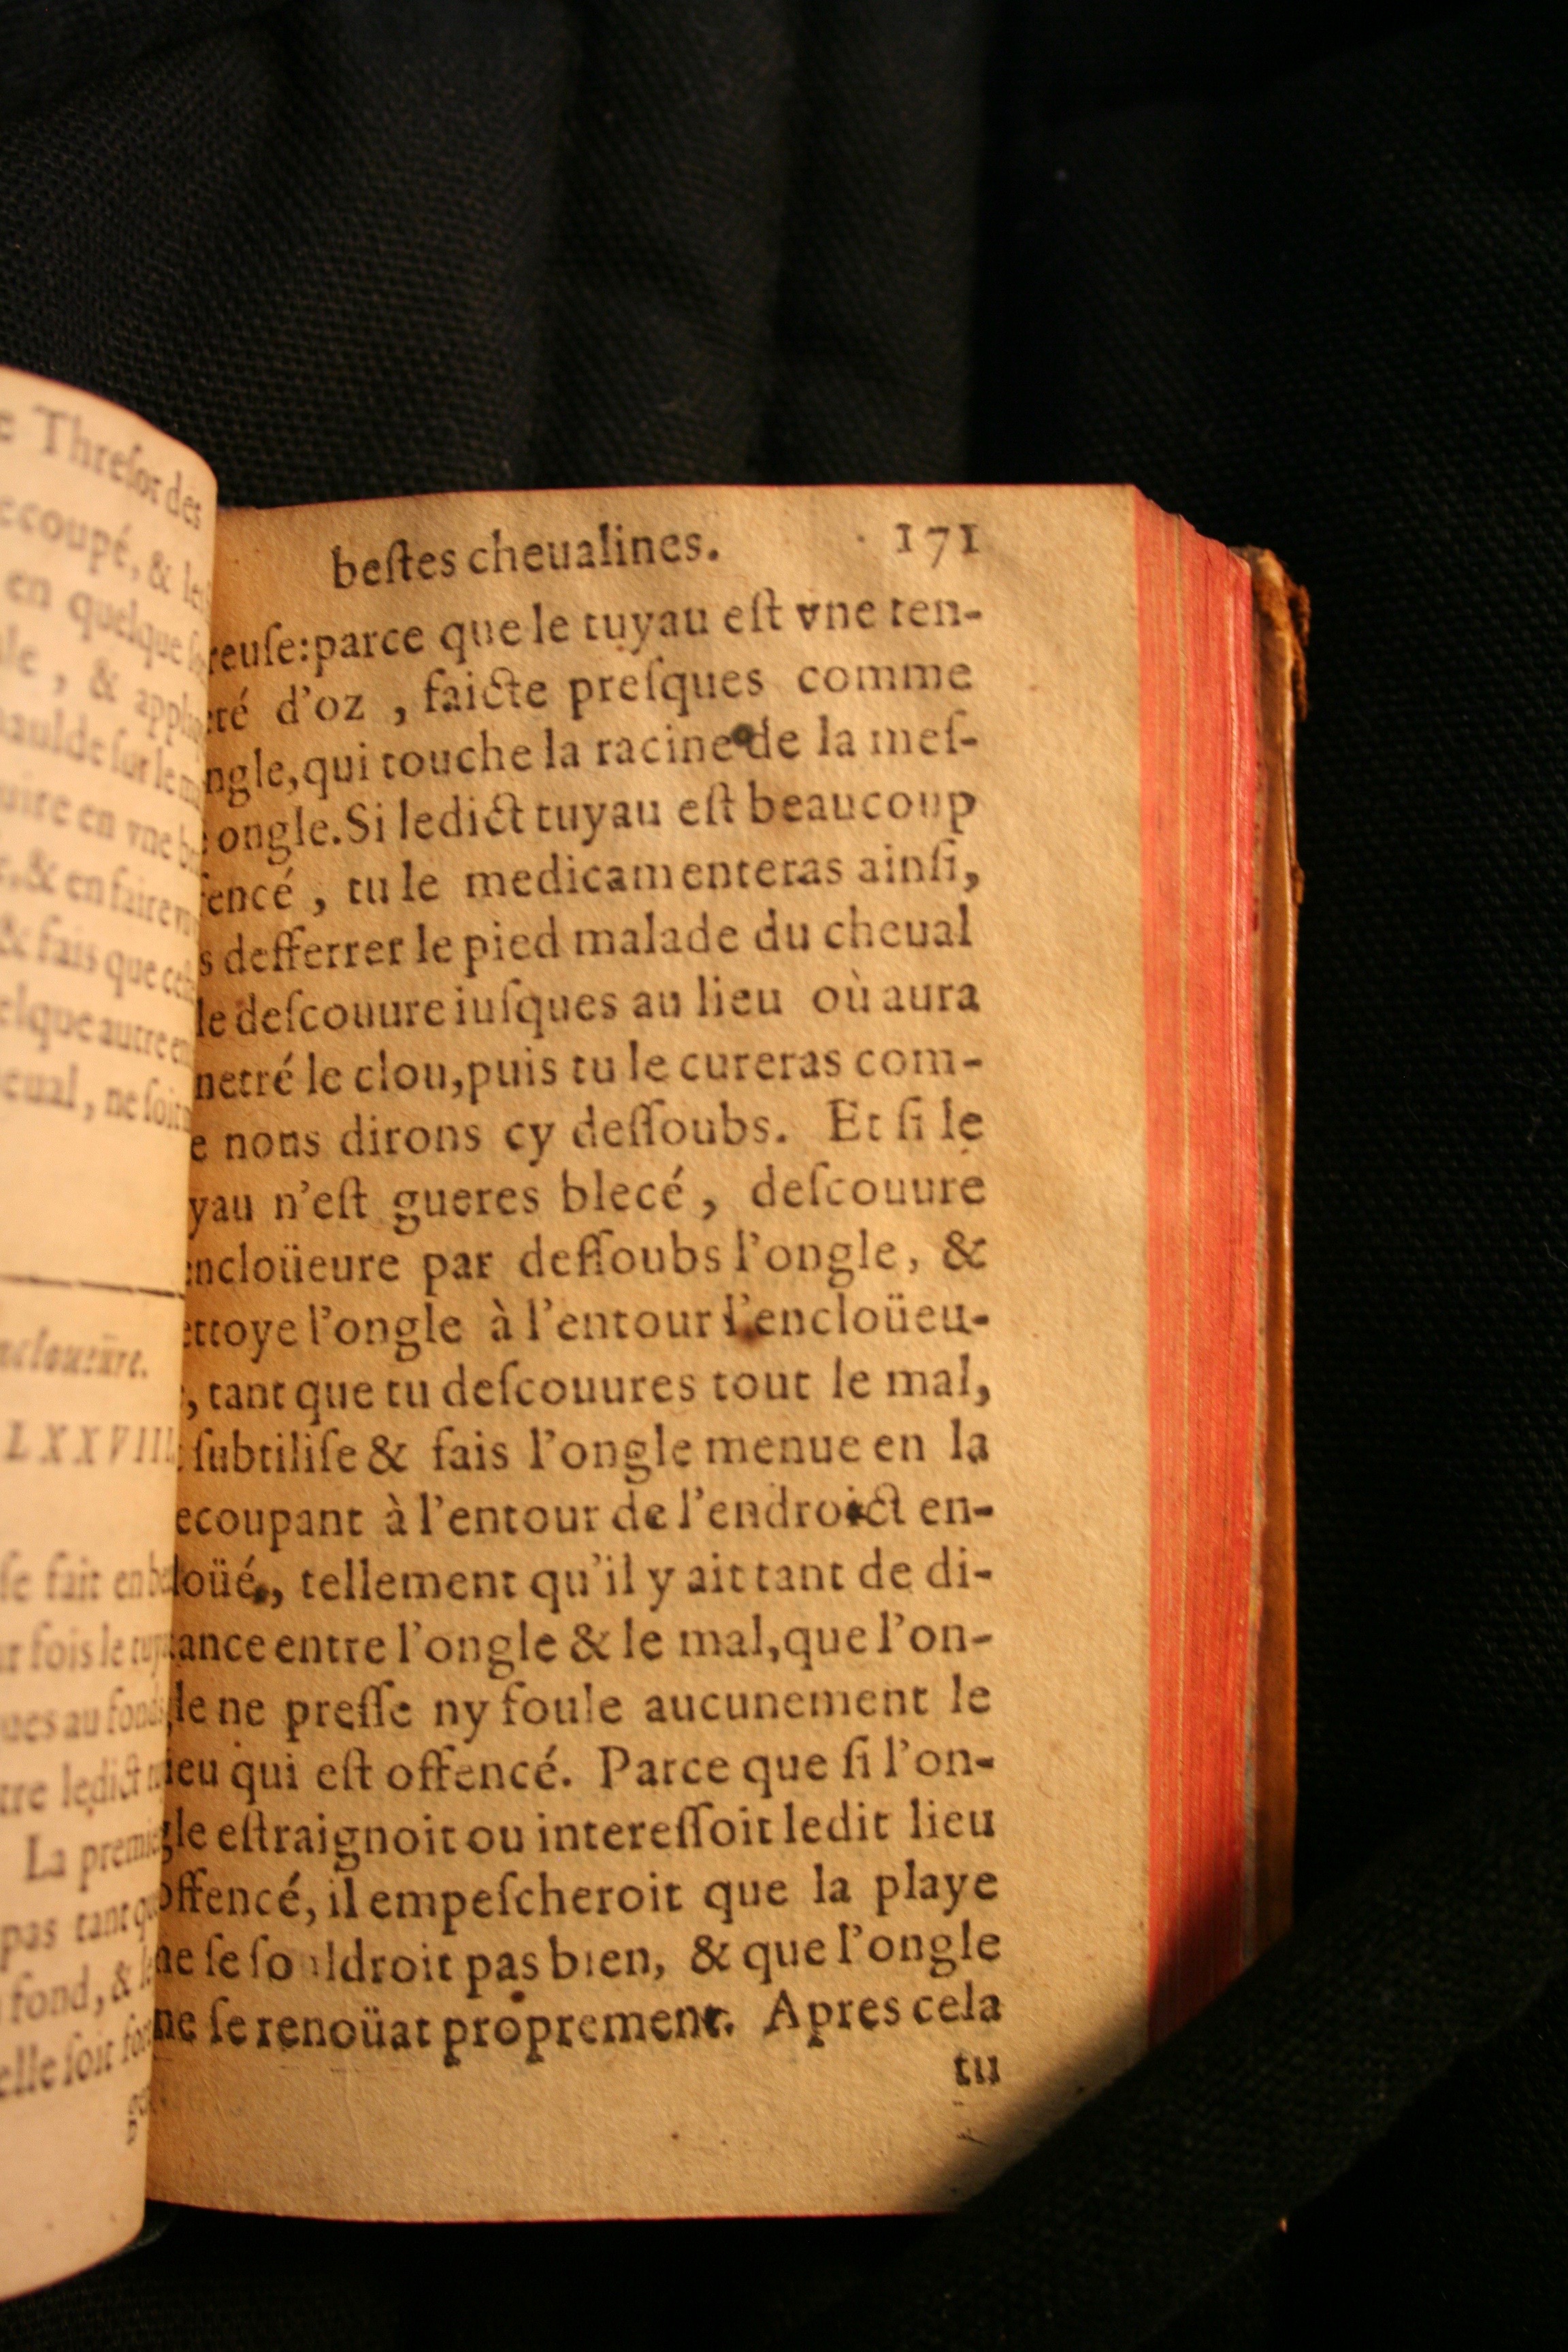 e Threſor des
ecoupé, & le
en quelque
le, & appl
haulde ſur le
uire en vne
& en faire
& fais que
elque autre
eual, ne ſoit
LXXVIII
ſe fait en
fois le
ues au fond
tre ledict
La premi
pas tant
fond, &
elle ſoit
beſtes cheualines. 171
reuſe: parce que le tuyau eſt vne ten-
té d'oz , faicte preſques comme
ngle, qui touche la racine de la meſ-
ongle. Si ledict tuyau eſt beaucoup
fencé , tu le medicamenteras ainſi,
s defferrer le pied malade du cheual
le deſcouure iuſques au lieu où aura
netré le clou, puis tu le cureras com-
e nous dirons cy deſſoubs. Et ſi le
yau n'eſt gueres blecé , deſcouure
encloüeure par deſſoubs l'ongle, &
ettoye l'ongle à l'entour l'encloüeu-
, tant que tu deſcouures tout le mal,
ſubtiliſe & fais l'ongle menue en la
ecoupant à l'entour de l'endroict en-
loüé, tellement qu'il y ait tant de di-
tance entre l'ongle & le mal, que l'on-
gle ne preſſe ny foule aucunement le
lieu qui eſt offencé. Parce que ſi l'on-
gle eſtraignoit ou intereſſoit ledit lieu
offencé, il empeſcheroit que la playe
ne ſe ſouldroit pas bien, & que l'ongle
ne ſe renoüat proprement. Apres cela
tu